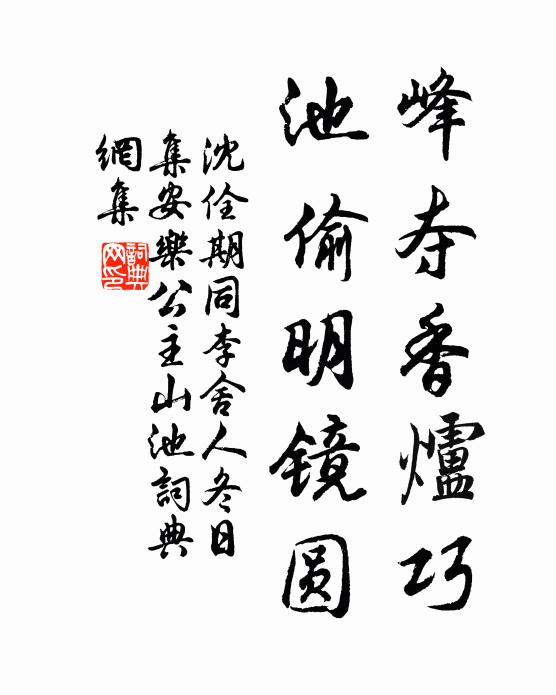 峰夺香爐巧
池偷明镜圆
沈佺期同李舍人冬日
集安樂公主山池詞典
網集
詞典
网印